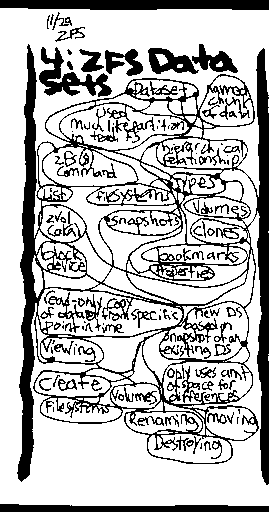 11/29
ZFS
4: ZFS Data
Sets
Dataset
named
chunk
of data
used
much like partition
in trad FS
hierarchical
relationship
ZFS(8)
command
types
list
filesystems
volumes
zvol
snapshots
clones
block
device
bookmarks
Properties
read-only copy
of dataset from specific
point in time
new DS
based on
snapshot of an
existing DS
viewing
only uses amt
of space for
differences
create
volumes
filesystems
Renaming
moving
Destroying